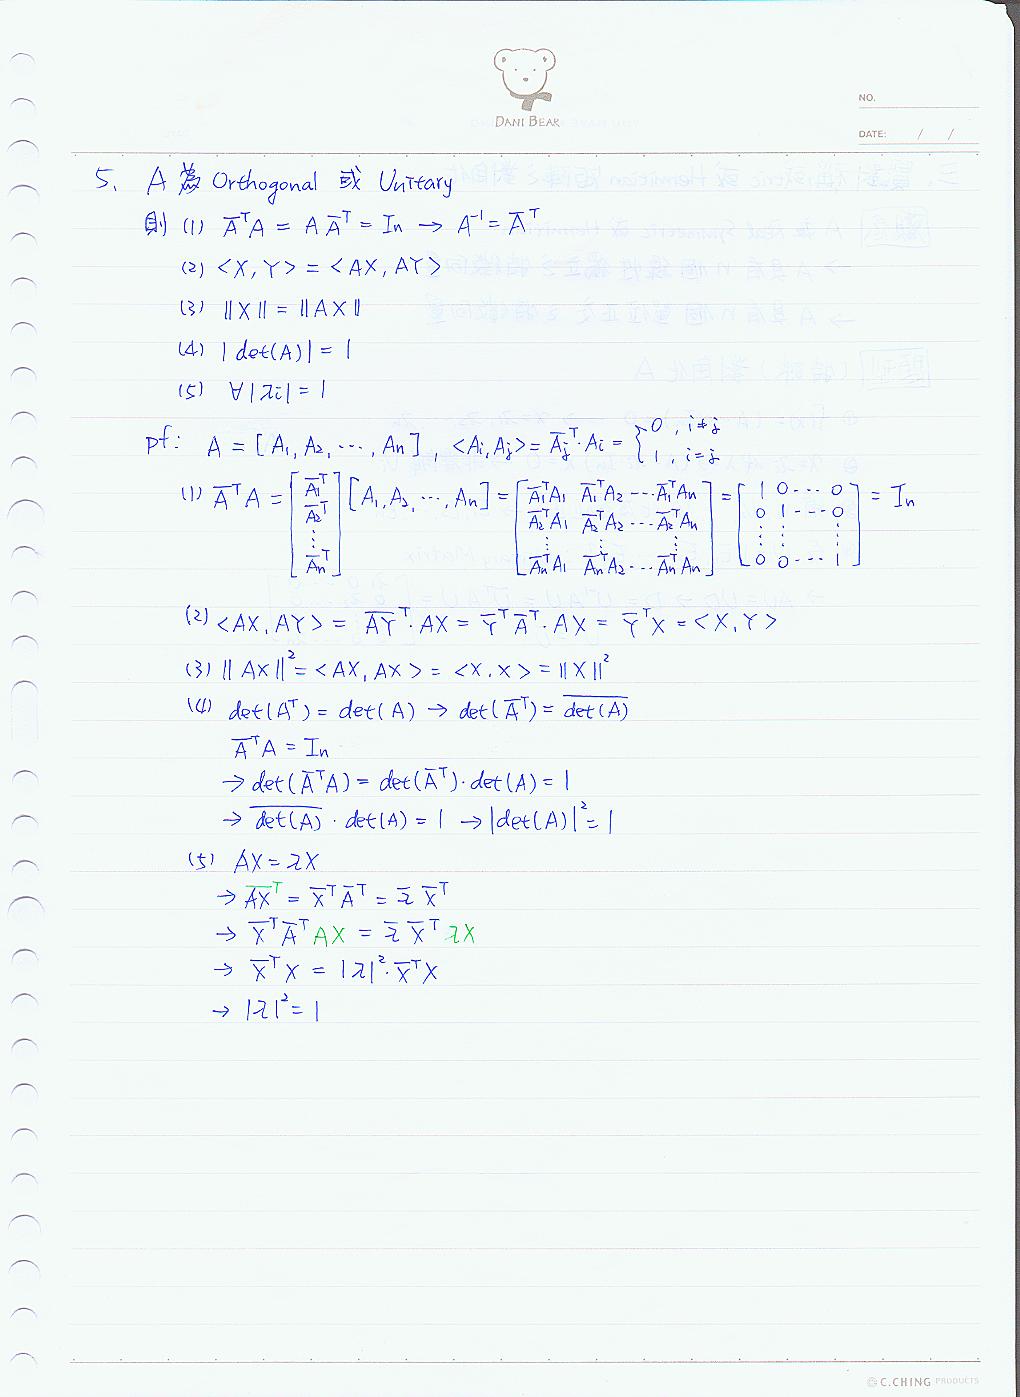 DANI BEAR
NO.
DATE: / /
5. A 為 Orthogonal 或 Unitary
則 (1) A̅ᵀA = A A̅ᵀ = In → A⁻¹ = A̅ᵀ
(2) <X, Y> = <AX, AY>
(3) ||X|| = ||AX||
(4) |det(A)| = 1
(5) ∀|λi| = 1
pf: A = [A₁, A₂, ⋯, An], <Ai, Aj> = A̅jᵀ·Ai = { 0, i≠j
1, i=j
(1) A̅ᵀA = [A̅₁ᵀ A̅₂ᵀ ⋮ A̅nᵀ] [A₁, A₂, ⋯, An] = [A̅₁ᵀA₁ A̅₁ᵀA₂ ⋯ A̅₁ᵀAn = [1 0 ⋯ 0 = In
A̅₂ᵀA₁ A̅₂ᵀA₂ ⋯ A̅₂ᵀAn 0 1 ⋯ 0
⋮ ⋮ ⋮ ⋮ ⋮ ⋮
A̅nᵀA₁ A̅nᵀA₂ ⋯ A̅nᵀAn] 0 0 ⋯ 1]
(2) <AX, AY> = A̅Y̅ᵀ·AX = Y̅ᵀA̅ᵀ·AX = Y̅ᵀX = <X, Y>
(3) ||AX||² = <AX, AX> = <X, X> = ||X||²
(4) det(Aᵀ) = det(A) → det(A̅ᵀ) = d̅e̅t̅(̅A̅)̅
A̅ᵀA = In
→ det(A̅ᵀA) = det(A̅ᵀ)·det(A) = 1
→ d̅e̅t̅(̅A̅)̅ · det(A) = 1 → |det(A)|² = 1
(5) AX = λX
→ A̅X̅ᵀ = X̅ᵀA̅ᵀ = λ̅ X̅ᵀ
→ X̅ᵀA̅ᵀAX = λ̅ X̅ᵀ λX
→ X̅ᵀX = |λ|²·X̅ᵀX
→ |λ|² = 1
© C.CHING PRODUCTS